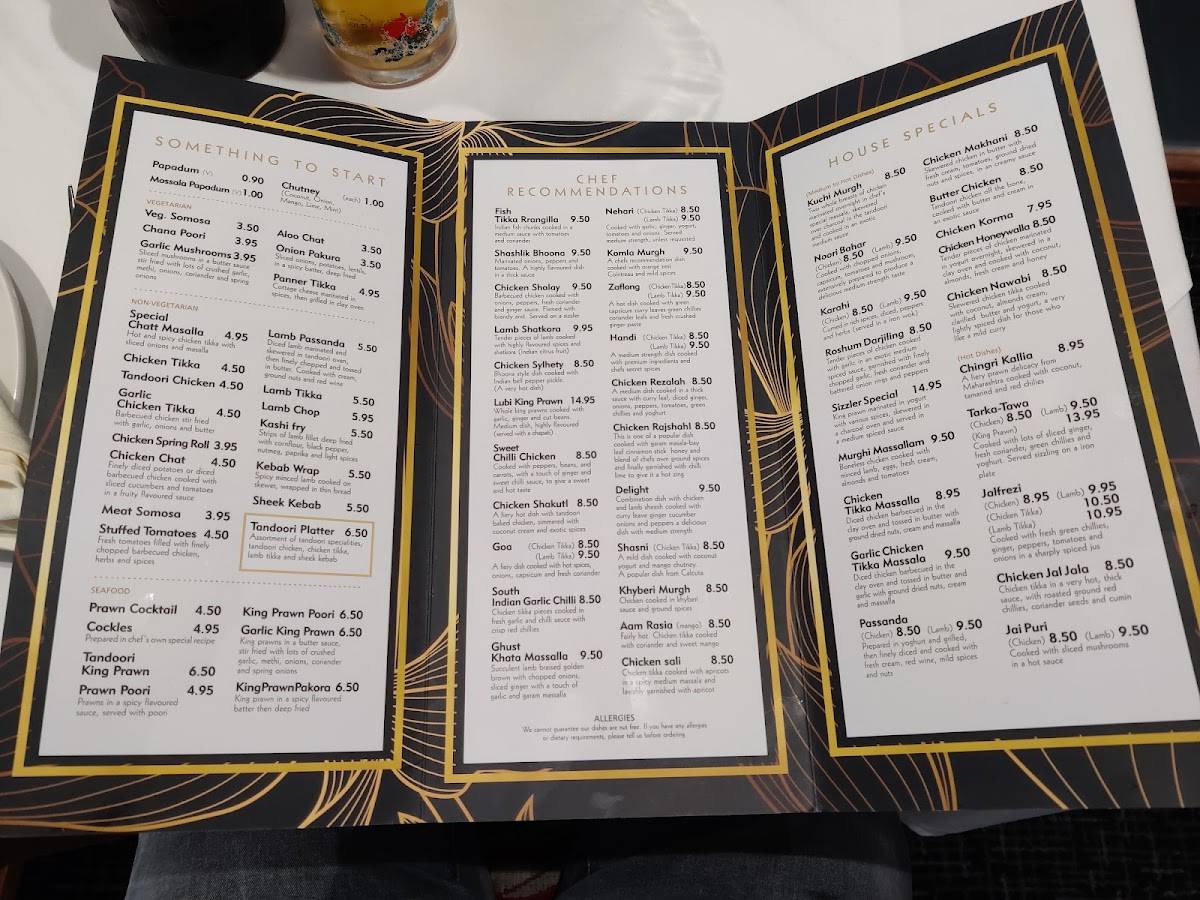 SOMETHING TO START
Papadum (V) 0.90
Mossala Papadum (V) 1.00
Chutney (each) 1.00
(Coconut, Onion,
Mango, Lime, Mint)
VEGETARIAN
Veg. Somosa 3.50
Chana Poori 3.95
Garlic Mushrooms 3.95
Sliced mushrooms in a butter sauce
stir fried with lots of crushed garlic,
methi, onions, coriander and spring
onions
Aloo Chat 3.50
Onion Pakura 3.50
Sliced onions, potatoes, lentils,
in a spicy batter, deep fried
Panner Tikka 4.95
Cottage cheese marinated in
spices, then grilled in clay oven
NON-VEGETARIAN
Special
Chatt Masalla 4.95
Hot and spicy chicken tikka with
sliced onions and masalla
Chicken Tikka 4.50
Tandoori Chicken 4.50
Garlic
Chicken Tikka 4.50
Barbecued chicken stir fried
with garlic, onions and butter
Chicken Spring Roll 3.95
Chicken Chat 4.50
Finely diced potatoes or diced
barbecued chicken cooked with
sliced cucumbers and tomatoes
in a fruity flavoured sauce
Meat Somosa 3.95
Stuffed Tomatoes 4.50
Fresh tomatoes filled with finely
chopped barbecued chicken,
herbs and spices
Lamb Passanda 5.50
Diced lamb marinated and
skewered in tandoori oven,
then finely chopped and tossed
in butter. Cooked with cream,
ground nuts and red wine
Lamb Tikka 5.50
Lamb Chop 5.95
Kashi fry 5.50
Strips of lamb fillet deep fried
with cornflour, black pepper,
nutmeg, paprika and light spices
Kebab Wrap 5.50
Spicy minced lamb cooked on
skewer, wrapped in thin bread
Sheek Kebab 5.50
Tandoori Platter 6.50
Assortment of tandoori specialities,
tandoori chicken, chicken tikka,
lamb tikka and sheek kebab
SEAFOOD
Prawn Cocktail 4.50
Cockles 4.95
Prepared in chef's own special recipe
Tandoori
King Prawn 6.50
Prawn Poori 4.95
Prawns in a spicy flavoured
sauce, served with poori
King Prawn Poori 6.50
Garlic King Prawn 6.50
King prawns in a butter sauce,
stir fried with lots of crushed
garlic, methi, onions, coriander
and spring onions
KingPrawnPakora 6.50
King prawn in a spicy flavoured
batter then deep fried
CHEF
RECOMMENDATIONS
Fish
Tikka Rrangilla 9.50
Indian fish chunks cooked in a
medium sauce with tomatoes
and coriander
Shashlik Bhoona 9.50
Marinated onions, peppers and
tomatoes. A highly flavoured dish
in a thick sauce
Chicken Sholay 9.50
Barbecued chicken cooked with
onions, peppers, fresh coriander
and ginger sauce. Flamed with
brandy and. Served on a sizzler
Lamb Shatkora 9.95
Tender pieces of lamb cooked
with highly flavoured spices and
shatkora (Indian citrus fruit)
Chicken Sylhety 8.50
Bhoona style dish cooked with
Indian bell pepper pickle.
(A very hot dish)
Lubi King Prawn 14.95
Whole king prawns cooked with
garlic, ginger and cut beans.
Medium dish, highly flavoured
(served with a chapati)
Sweet
Chilli Chicken 8.50
Cooked with peppers, beans, and
carrots, with a touch of ginger and
sweet chilli sauce, to give a sweet
and hot taste
Chicken Shakutl 8.50
A fiery hot dish with tandoori
baked chicken, simmered with
coconut cream and exotic spices
Goa (Chicken Tikka) 8.50
(Lamb Tikka) 9.50
A fiery dish cooked with hot spices,
onions, capsicum and fresh coriander
South
Indian Garlic Chilli 8.50
Chicken tikka pieces cooked in
fresh garlic and chilli sauce with
crisp red chillies
Ghust
Khata Massalla 9.50
Succulent lamb braised golden
brown with chopped onions,
sliced ginger with a touch of
garlic and garam massalla
Nehari (Chicken Tikka) 8.50
(Lamb Tikka) 9.50
Cooked with garlic, ginger, yogurt,
tomatoes and onions. Served
medium strength, unless requested
Komla Murgh 9.50
A chefs recommendation dish
cooked with orange zest
Cointreau and mild spices
Zaflong (Chicken Tikka) 8.50
(Lamb Tikka) 9.50
A hot dish cooked with green
capsicum curry leaves green chillies
coriander leafs and fresh crushed
ginger paste
Handi (Chicken Tikka) 8.50
(Lamb Tikka) 9.50
A medium strength dish cooked
with premium ingredients and
chefs secret spices
Chicken Rezalah 8.50
A medium dish cooked in a thick
sauce with curry leaf, diced ginger,
onions, peppers, tomatoes, green
chillies and yoghurt
Chicken Rajshahl 8.50
This is one of a popular dish
cooked with garam masala-bay
leaf cinnamon stick honey and
blend of chefs own ground spices
and finally garnished with chilli
lime to give it a hot zing
Delight 9.50
Combination dish with chicken
and lamb sheesh cooked with
curry leave ginger cucumber
onions and peppers a delicious
dish with medium strength
Shasni (Chicken Tikka) 8.50
A mild dish cooked with coconut
yogurt and mango chutney.
A popular dish from Calcuta
Khyberi Murgh 8.50
Chicken cooked in khyberi
sauce and ground spices
Aam Rasia (mango) 8.50
Fairly hot. Chicken tikka cooked
with coriander and sweet mango
Chicken sali 8.50
Chicken tikka cooked with apricots
in a spicy medium massala and
lavishly garnished with apricot
ALLERGIES
We cannot guarantee our dishes are nut free. If you have any allergies
or dietary requirements, please tell us before ordering
HOUSE SPECIALS
(Medium to Hot Dishes)
Kuchi Murgh 8.50
Two whole breasts of chicken
marinated overnight in chef's
special masala, skewered
over charcoal in the tandoori
and cooked in an exotic
medium sauce
Noori Bahar
(Chicken) 8.50 (Lamb) 9.50
Cooked with chopped onions,
capsicum, tomatoes and mushroom,
extensively spiced to produce a
delicious medium strength taste
Karahi
(Chicken) 8.50 (Lamb) 9.50
Curried in rich spices, diced, peppers
and herbs (served in a iron wok)
Roshum Darjiling 8.50
Tender pieces of chicken cooked
with garlic in an exotic medium
spiced sauce, garnished with finely
chopped garlic, fresh coriander and
battered onion rings and peppers
Sizzler Special 14.95
King prawn marinated in yogurt
with various spices, skewered in
a charcoal oven and served in
a medium spiced sauce
Murghi Massallam 9.50
Boneless chicken cooked with
minced lamb, eggs, fresh cream,
almonds and tomatoes
Chicken
Tikka Massalla 8.95
Diced chicken barbecued in the
clay oven and tossed in butter with
ground dried nuts, cream and masalla
Garlic Chicken
Tikka Massala 9.50
Diced chicken barbecued in the
clay oven and tossed in butter and
garlic with ground dried nuts, cream
and masalla
Passanda
(Chicken) 8.50 (Lamb) 9.50
Prepared in yoghun and grilled,
then finely diced and cooked with
fresh cream, red wine, mild spices
and nuts
Chicken Makhani 8.50
Skewered chicken in butter with
fresh cream, tomatoes, ground dried
nuts and spices, in an creamy sauce
Butter Chicken 8.50
Tandoori chicken off the bone,
cooked with butter and cream in
an exotic sauce
Chicken Korma 7.95
Chicken Honeywalla 8.50
Tender pieces of chicken marinated
in yogurt overnight, skewered in a
clay oven and cooked with coconut,
almonds, fresh cream and honey
Chicken Nawabi 8.50
Skewered chicken tikka cooked
with coconut, almonds cream,
distilled butter and yogurt, a very
lightly spiced dish for those who
like a mild curry
(Hot Dishes)
Chingri Kallia 8.95
A fiery prawn delicacy from
Maharashtra cooked with coconut,
tamarind and red chillies
Tarka-Tawa
(Chicken) 8.50 (Lamb) 9.50
(King Prawn) 13.95
Cooked with lots of sliced ginger,
fresh coriander, green chillies and
yoghurt. Served sizzling on a iron
plate
Jalfrezi
(Chicken) 8.95 (Lamb) 9.95
(Chicken Tikka) 10.50
(Lamb Tikka) 10.95
Cooked with fresh green chillies,
ginger, peppers, tomatoes and
onions in a sharply spiced jus
Chicken Jal Jala 8.50
Chicken tikka in a very hot, thick
sauce, with roasted ground red
chillies, coriander seeds and cumin
Jai Puri
(Chicken) 8.50 (Lamb) 9.50
Cooked with sliced mushrooms
in a hot sauce